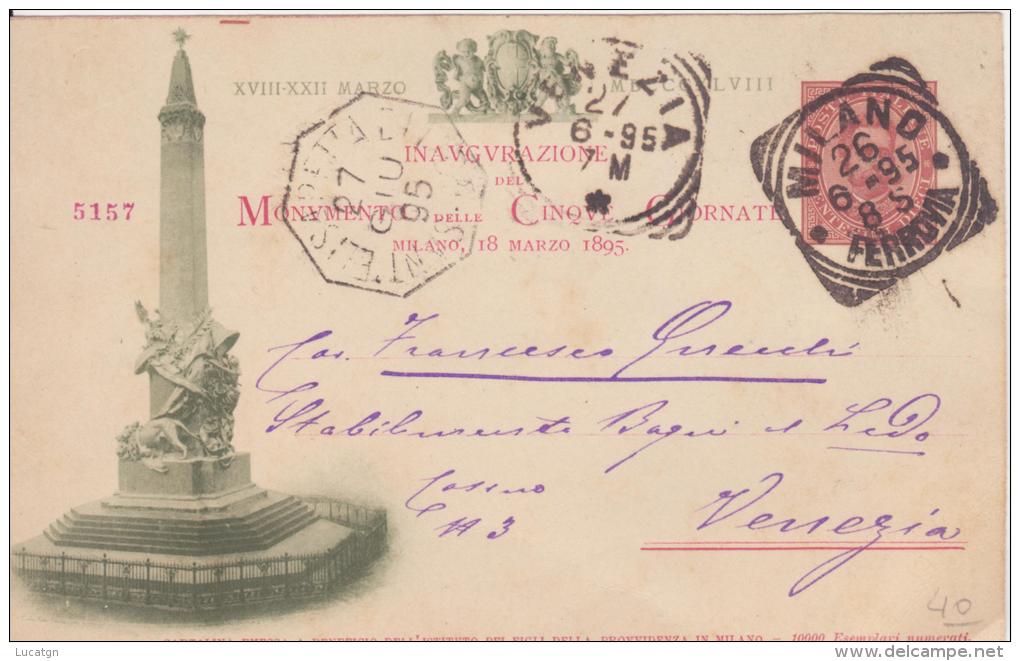 XVIII-XXII MARZO MDCCCXLVIII
INAVGVRAZIONE
DEL
MONVMENTO DELLE CINQVE GIORNATE
MILANO, 18 MARZO 1895.
5157
VENEZIA
27
6-95
7 M
MILANO
26
6-95
8 S
FERROVIA
27
GIU
95
Francesco
Stabilimento Bagni Lido
Venezia
40
CARTOLINA EMESSA A BENEFICIO DELL'ISTITUTO DEI FIGLI DELLA PROVVIDENZA IN MILANO - 10000 Esemplari numerati.
Lucatgn
delcampe.net